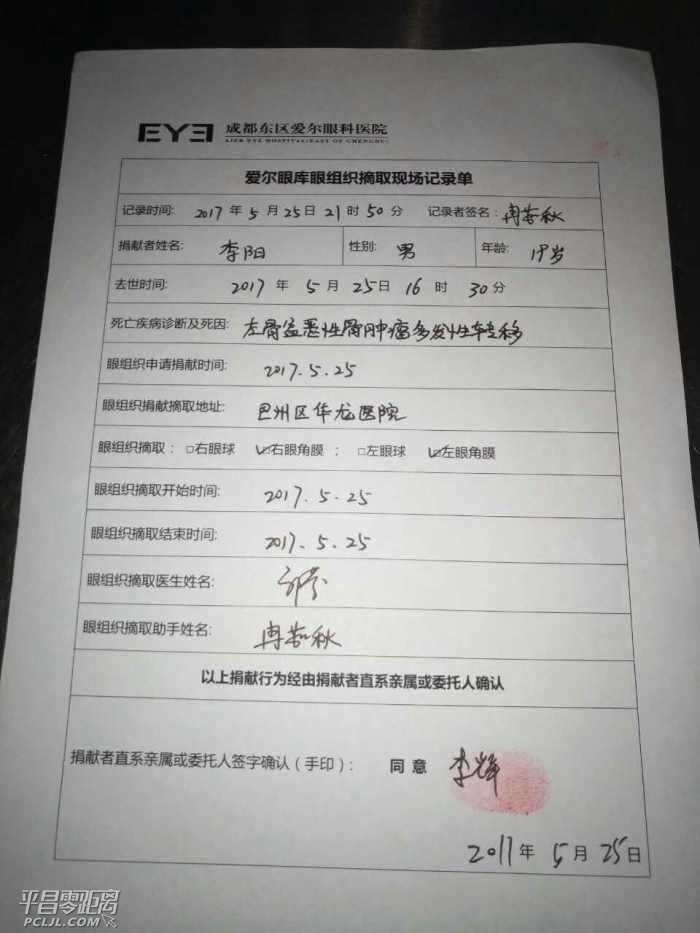 EYE 成都东区爱尔眼科医院
AIER EYE HOSPITAL(EAST OF CHENGDU)
爱尔眼库眼组织摘取现场记录单
记录时间: 2017 年 5 月 25 日 21 时 50 分 记录者签名: 冉茂秋
捐献者姓名: 李阳 性别: 男 年龄: 19岁
去世时间: 2017 年 5 月 25 日 16 时 30 分
死亡疾病诊断及死因: 左骨盆恶性骨肿瘤多发性转移
眼组织申请捐献时间: 2017.5.25
眼组织捐献摘取地址: 巴州区华龙医院
眼组织摘取: □右眼球 ☑右眼角膜 ; □左眼球 ☑左眼角膜
眼组织摘取开始时间: 2017.5.25
眼组织摘取结束时间: 2017.5.25
眼组织摘取医生姓名:
眼组织摘取助手姓名: 冉茂秋
以上捐献行为经由捐献者直系亲属或委托人确认
捐献者直系亲属或委托人签字确认(手印): 同意 李辉
2017 年 5 月 25 日
平昌零距离
PCLJL.COM